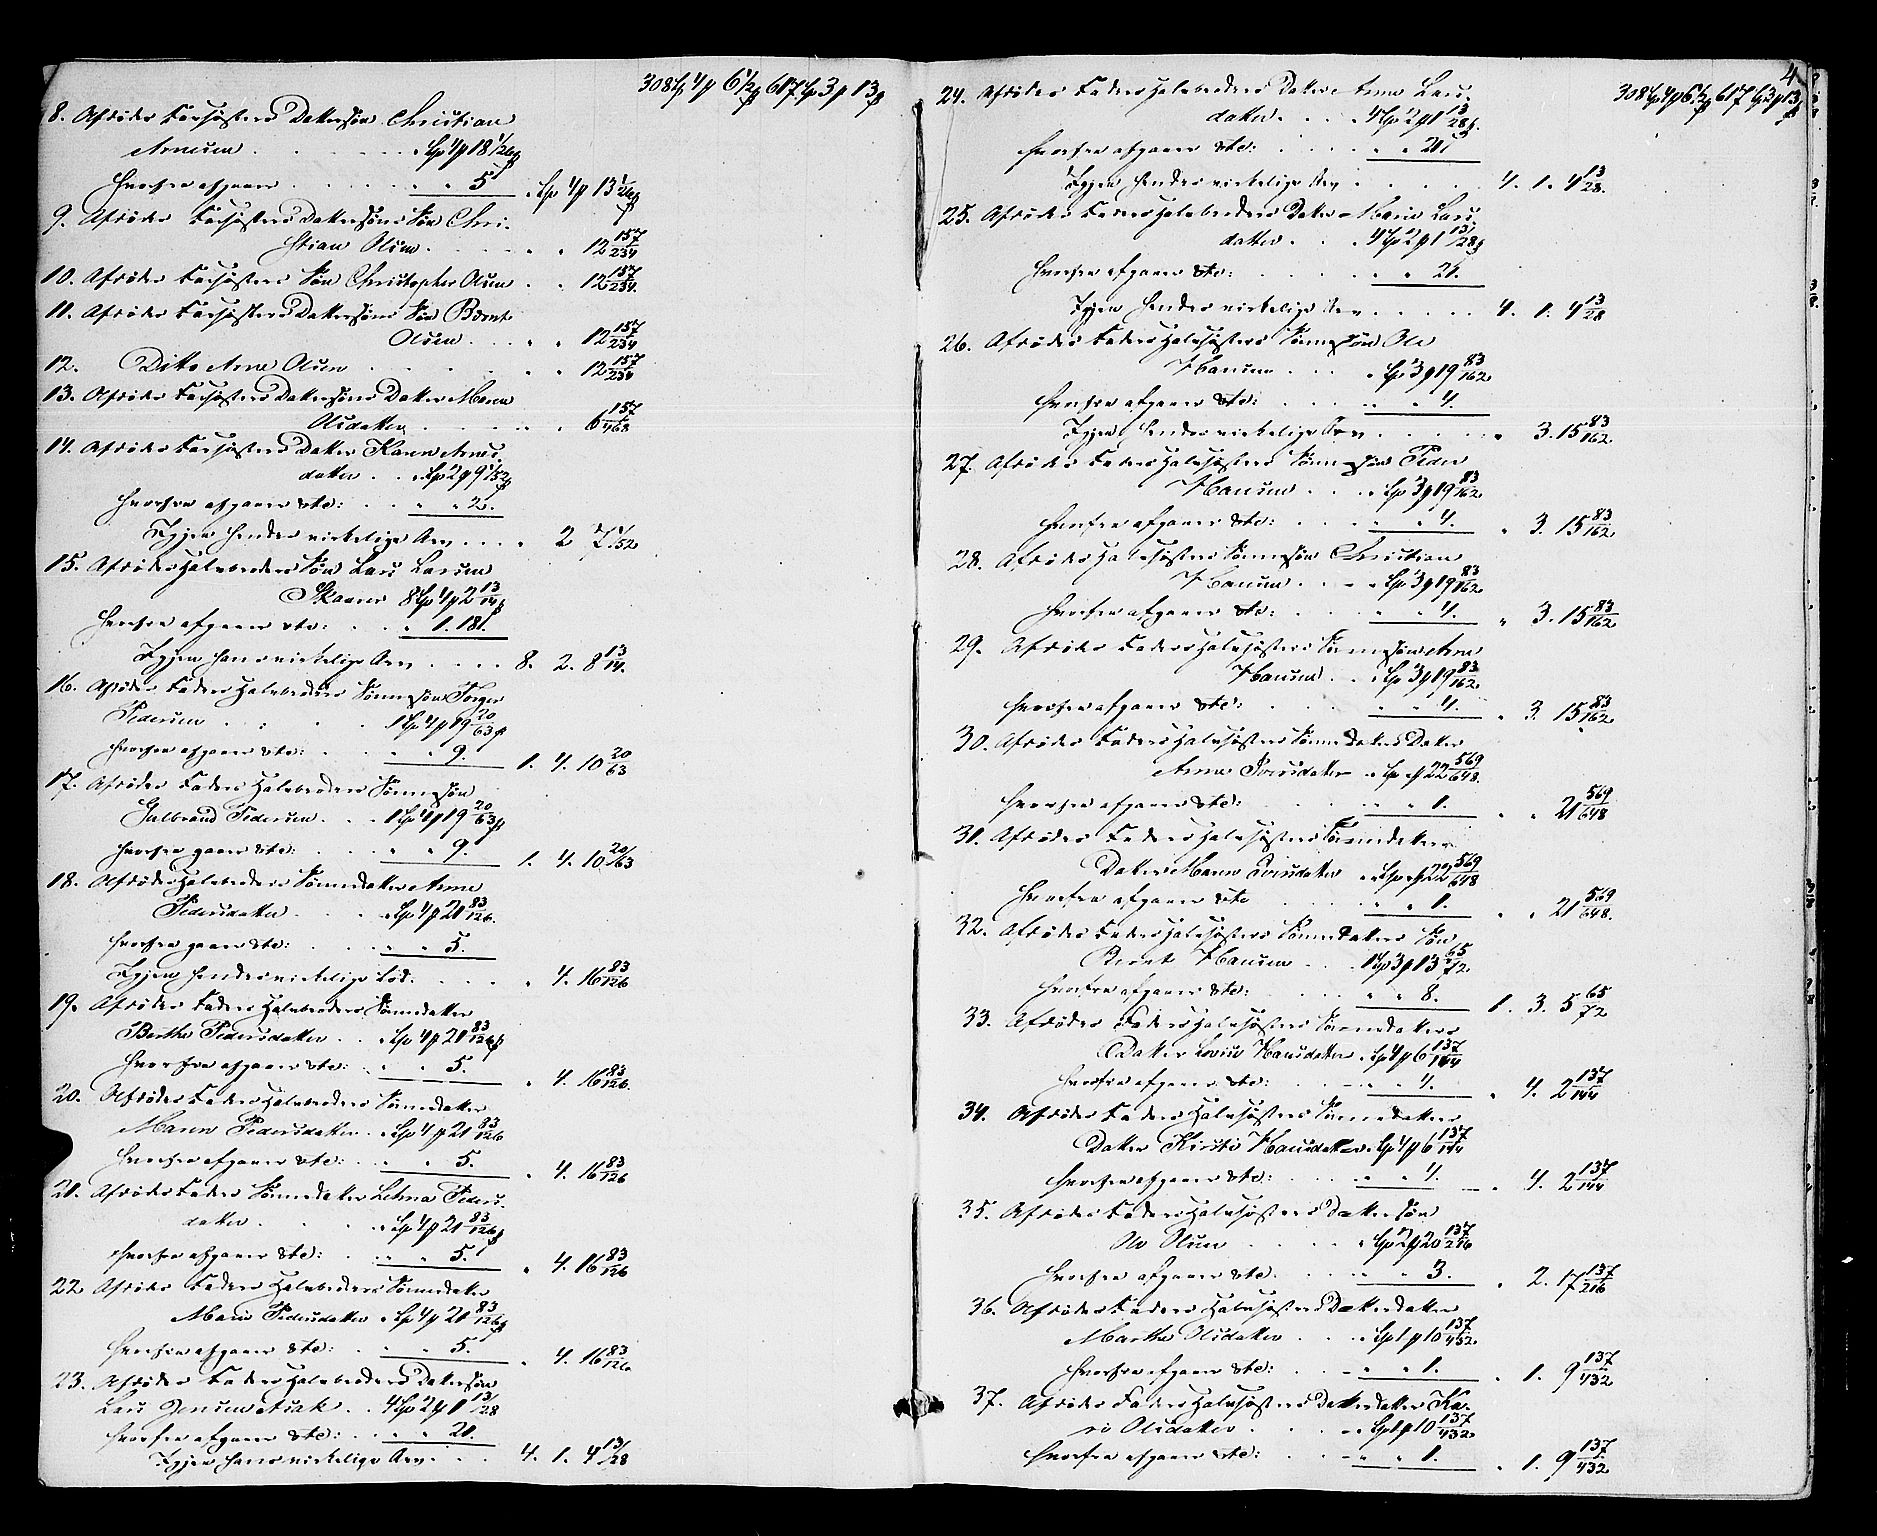 308 Sp 4 ß 6 1/2 ß 617 Sp 3 ß 13 ß
8. Afdødes Farsøsters Dattersøn Christian
Arnesen . . . „ Sp 4 ß 18 1/26 ß
hvorfra afgaaer . . . „ „ 5 „ Sp 4 ß 13 1/26 ß
9. Afdødes Farsøsters Dattersøns Søn Chri-
stian Olsen . . . „ „ 12 157/234
10. Afdødes Farsøsters Søn Christopher Olsen . . „ 12 157/234
11. Afdødes Farsøsters Dattersøns Søn Bernt
Olsen . . . „ „ 12 157/234
12. Ditto Arne Olsen . . . „ 12 157/234
13. Afdødes Farsøsters Dattersøns Datter Maren
Olsdatter . . . „ 6 157/468
14. Afdødes Farsøsters Datter Karen Arnes-
datter . . „ Sp 2 ß 9 1/52 ß
hvorfra afgaaer etc: . . „ „ 2.
Igjen hendes virkelige Arv . . . „ 2 7 1/52
15. Afdødes Halvbroders Søn Lars Larsen
Skaarer 8 Sp 4 ß 2 13/14 ß
hvorfra afgaaer etc: . . „ 1. 18.
Igjen hans virkelige Arv . . . . 8. 2. 8 13/14.
16. Afdødes Faders Halvbroders Sønnesøn Torger
Pedersen . . . 1 Sp 4 ß 19 20/63 ß
hvorfra afgaaer etc: . . „ „ 9. 1. 4. 10 20/63
17. Afdødes Faders Halvbroders Sønnesøn
Gulbrand Pedersen . . . 1 Sp 4 ß 19 20/63 ß
hvorfra gaaer etc: . . . „ „ 9. 1. 4. 10 20/63
18. Afdødes Halvbroders Sønnedatter Anne
Pedersdatter . . . „ Sp 4 ß 21 83/126.
hvorfra gaaer etc: . . . „ „ 5.
Igjen hendes virkelige Lod. . . . „ 4. 16 83/126
19. Afdødes Faders Halvbroders Sønnedatter
Berthe Pedersdatter . . „ Sp 4 ß 21 83/126 ß
hvorfra afgaaer etc: . „ „ 5. „ 4. 16 83/126.
20. Afdødes Faders Halvbroders Sønnedatter
Maren Pedersdatter . „ Sp 4 ß 21 83/126
hvorfra afgaaer etc: . . „ „ 5. „ 4. 16 83/126
21. Afdødes Faders Sønnedatter Lehna Peders-
datter . . . „ Sp 4 ß 21 83/126 ß
hvorfra afgaaer etc: . „ „ 5. „ 4. 16 83/126
22. Afdødes Faders Halvbroders Sønnedatter
Marie Pedersdatter „ Sp 4 ß 21 83/126 ß
hvorfra afgaaer etc: . . „ „ 5. „ 4. 16 83/126
23. Afdødes Faders Halvbroders Dattersøn
Lars Jensen . . 4 Sp 2 ß 1 13/28
hvorfra afgaaer etc: . . „ „ 21.
Igjen hans virkelige Arv. . . 4. 1. 4 13/28
4
308 Sp 4 ß 6 1/2 ß 617 Sp 3 ß 13 ß
24. Afdødes Faders Halvbroders Datter Anne Lars-
datter . . . 4 Sp 2 ß 1 13/28 ß.
hvorfra afgaaer etc: . . . „ „ 21
Igjen hendes virkelige Arv . . . 4. 1. 4 13/28.
25. Afdødes Faders Halvbroders Datter Marie Lars-
datter . . . 4 Sp 2 ß 1 13/28 ß
hvorfra afgaaer etc: . . . „ „ 21.
Igjen hendes virkelige Arv . . . . 4. 1. 4 13/28
26. Afdødes Faders Halvsøsters Sønnesøn Ole
Hansen . . . „ Sp 3 ß 19 83/162
hvorfra afgaaer etc: . . . „ „ 4.
Igjen hendes virkelige Arv . . . „ 3. 15 83/162.
27. Afdødes Faders Halvsøsters Sønnesøn Peder
Hansen . . . „ Sp 3 ß 19 83/162
hvorfra afgaaer etc: . . . „ „ 4. „ 3. 15 83/162
28. Afdødes Halvsøsters Sønnesøn Christian
Hansen . . . „ Sp 3 ß 19 83/162
hvorfra afgaaer etc: . . . „ „ 4. „ 3. 15 83/162
29. Afdødes Faders Halvsøsters Sønnesøn Arne
Hansen . . „ Sp 3 ß 19 83/162
hvorfra afgaaer etc: . . . „ „ 4. „ 3. 15 83/162
30. Afdødes Faders Halvsøsters Sønnedatters Datter
Anne Iversdatter „ Sp „ ß 22 569/648.
hvorfra afgaaer etc: . . . „ „ 1. „ „ 21 569/648
31. Afdødes Faders Halvsøsters Sønnedatters
Datter Maren Iversdatter „ Sp „ ß 22 569/648
hvorfra afgaaer etc . . . „ „ 1. „ „ 21 569/648.
32. Afdødes Faders Halvsøsters Sønnedatters Søn
Bernt Hansen . . . 1 Sp 3 ß 13 65/72
hvorfra afgaaer etc: . . . „ „ 8. 1. 3. 5 65/72
33. Afdødes Faders Halvsøsters Sønnedatters
Datter Lovise Hansdatter „ Sp 4 ß 6 137/144
hvorfra afgaaer etc: . . . „ „ 4. „ 4. 2 137/144
34. Afdødes Faders Halvsøsters Sønnedatters
Datter Kirsti Hansdatter „ Sp 4 ß 6 137/144
hvorfra afgaaer etc: . . . „ „ 4. „ 4. 2 137/144
35. Afdødes Faders Halvsøsters Dattersøn
Ole Olsen . . . „ Sp 2 ß 20 137/216
hvorfra afgaaer etc. . . . „ „ 3. „ 2. 17 137/216
36. Afdødes Faders Halvsøsters Datterdatter
Marthe Olsdatter . . . „ Sp 1 ß 10 137/432.
hvorfra afgaaer etc: . . . „ „ 1. „ 1. 9 137/432
37. Afdødes Faders Halvsøsters Datterdatter Ka-
ri Olsdatter . . . „ Sp 1 ß 10 137/432
hvorfra afgaaer etc: . . . „ „ 1. „ 1. 9 137/432